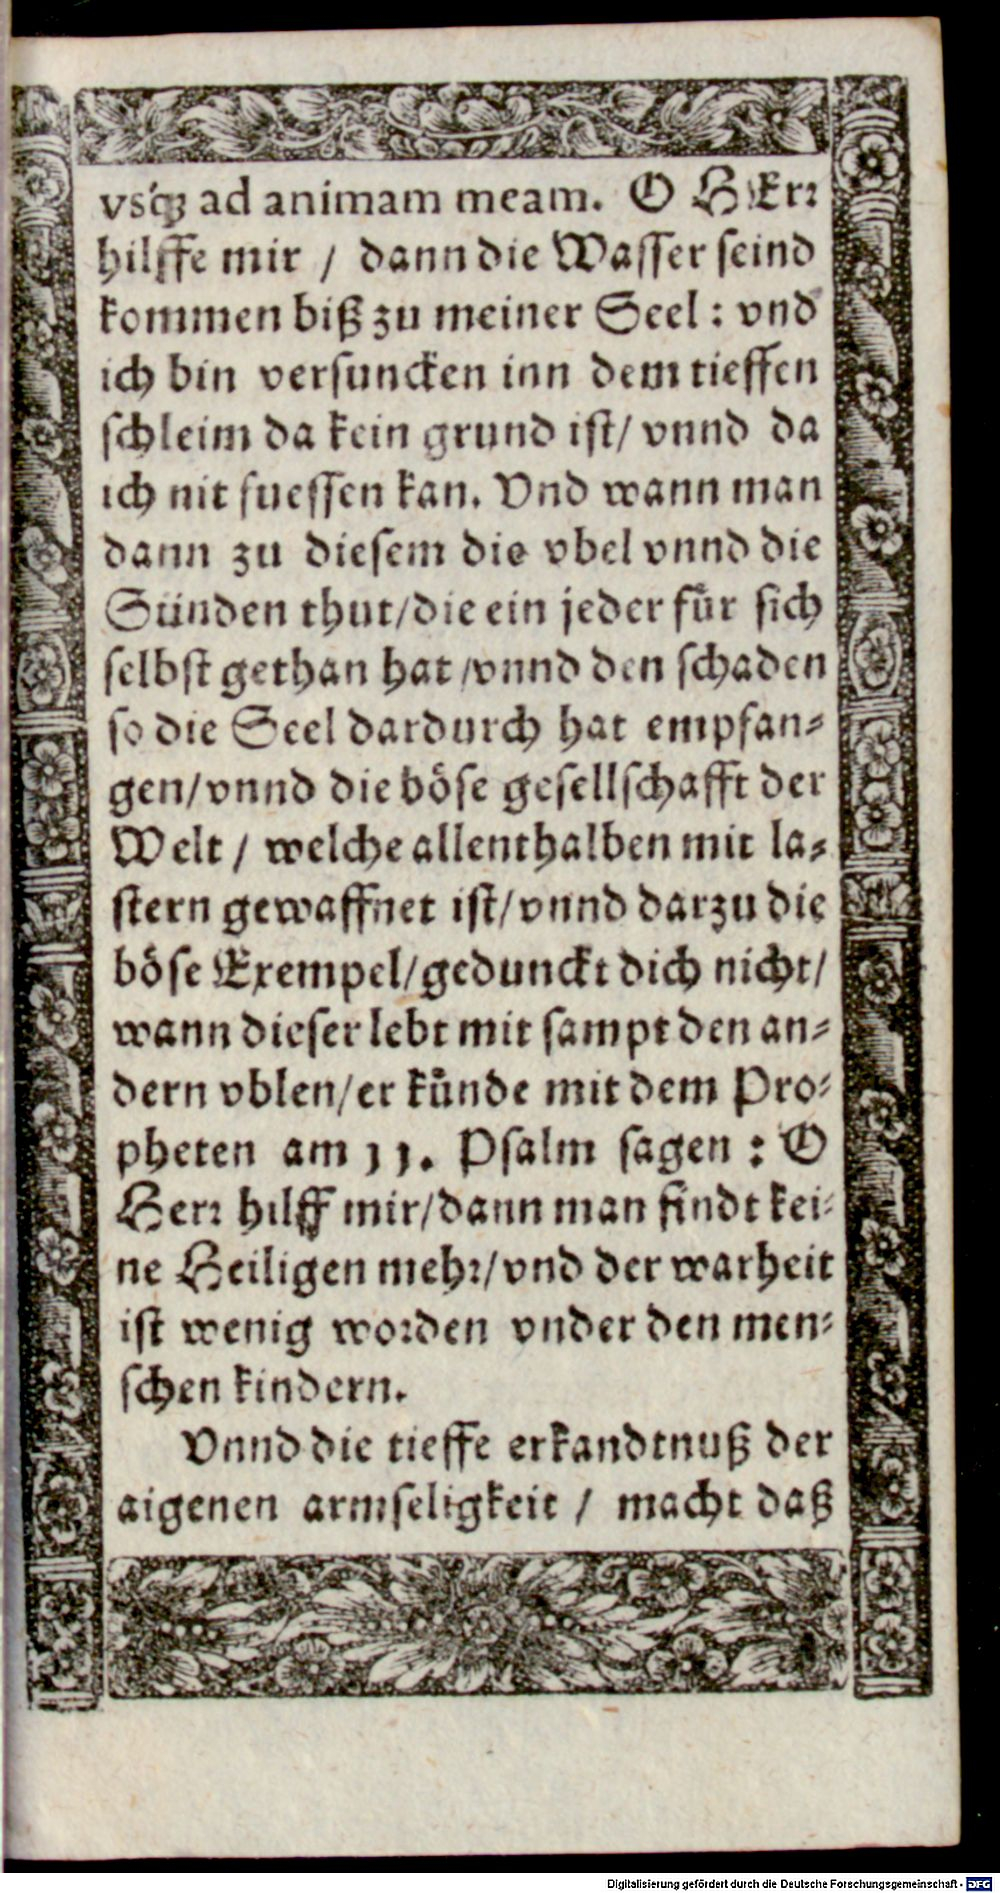 vsq́; ad animam meam. O HErꝛ
hilffe mir / dann die Wasser seind
kommen biß zu meiner Seel : vnd
ich bin versuncken inn dem tieffen
schleim da kein grund ist/ vnnd da
ich nit fuessen kan. Vnd wann man
dann zu diesem die vbel vnnd die
Sünden thut/die ein jeder fuͤr sich
selbst gethan hat /vnnd den schaden
so die Seel dardurch hat empfan-
gen/vnnd die böse gesellschafft der
Welt / welche allenthalben mit la-
stern gewaffnet ist/vnnd darzu die
böse Exempel/gedunckt dich nicht/
wann dieser lebt mit sampt den an-
dern vblen/er kuͤnde mit dem Pro-
pheten am 11. Psalm sagen : O
Herꝛ hilff mir/dann man findt kei-
ne Heiligen mehꝛ/vnd der warheit
ist wenig woꝛden vnder den men-
schen kindern.
Vnnd die tieffe erkandtnuß der
aigenen armseligkeit / macht daß
Digitalisierung gefördert durch die Deutsche Forschungsgemeinschaft - DFG